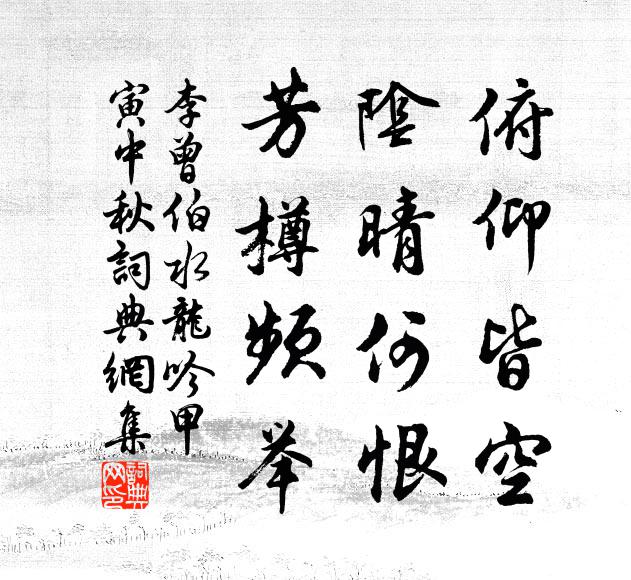 俯仰皆空
陰晴何恨
芳樽頻举
李曾伯水龍吟甲
寅中秋詞典網集
詞典網印